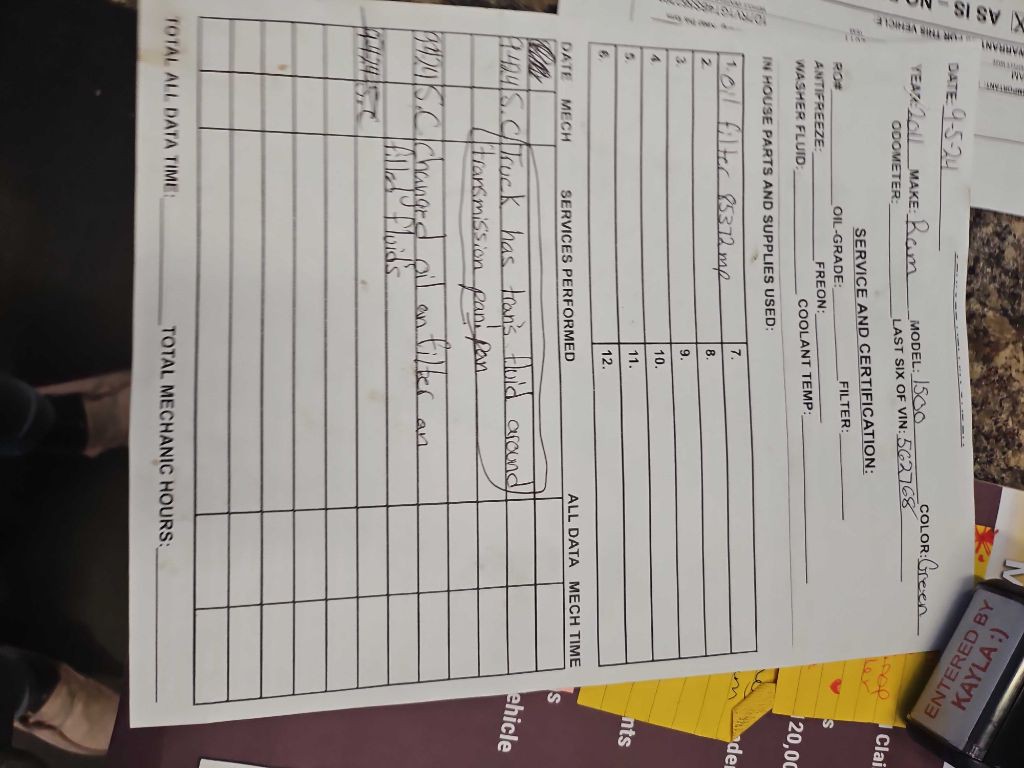 AS IS - NO
DATE: 9-5-24
YEAR: 2011 MAKE: Ram MODEL: 1500 COLOR: Green
ODOMETER: LAST SIX OF VIN: 562768
SERVICE AND CERTIFICATION:
RO#: OIL-GRADE: FILTER:
ANTIFREEZE: FREON:
WASHER FLUID: COOLANT TEMP:
IN HOUSE PARTS AND SUPPLIES USED:
1. Oil filter 85372mp 7.
2. 8.
3. 9.
4. 10.
5. 11.
6. 12.
DATE MECH SERVICES PERFORMED ALL DATA MECH TIME
9424 S.C Truck has trans fluid around
transmission pan pan
9424 S.C changed oil an filter an
filled fluids
TOTAL ALL DATA TIME: TOTAL MECHANIC HOURS:
ENTERED BY
KAYLA ;)
ehicle
nts
20,00
Clai